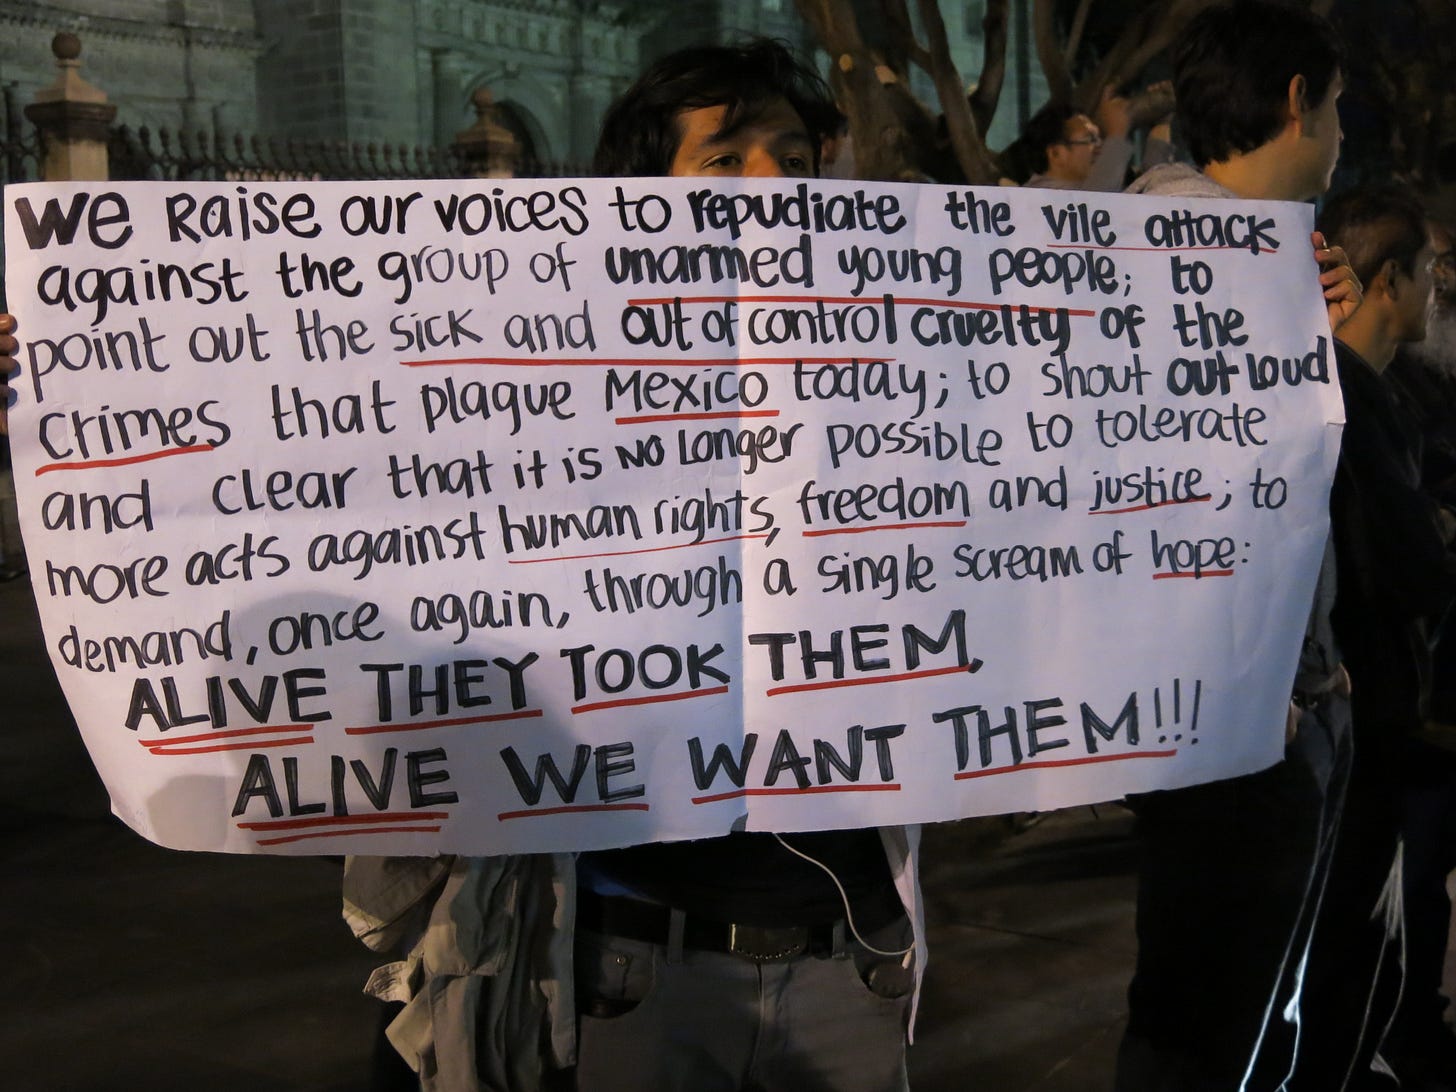 We Raise our voices to repudiate the vile attack
against the group of unarmed young people; to
point out the sick and out of control cruelty of the
crimes that plague Mexico today; to shout out loud
and clear that it is NO Longer possible to tolerate
more acts against human rights, freedom and justice; to
demand, once again, through a single scream of hope:
ALIVE THEY TOOK THEM,
ALIVE WE WANT THEM!!!